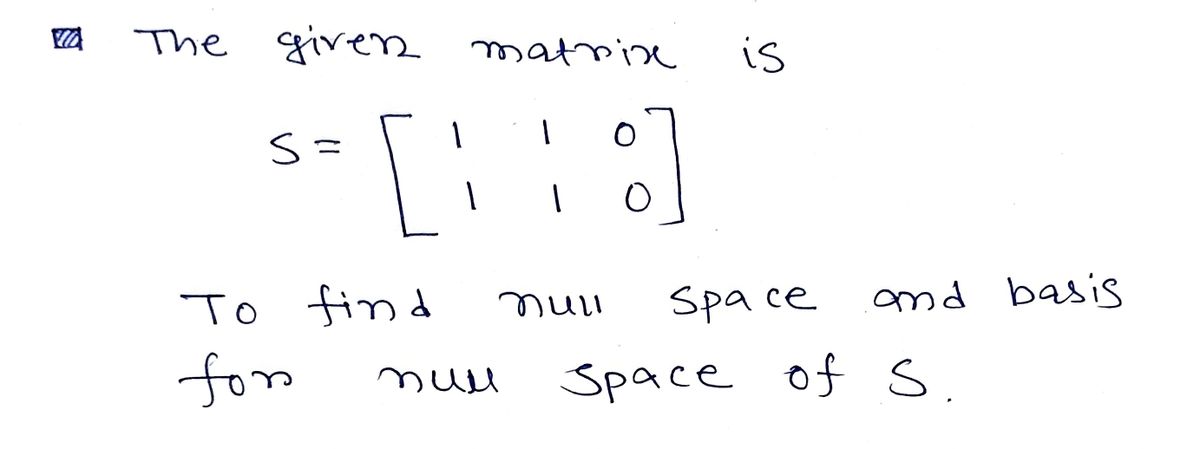 The given matrix is
S = [ 1 1 0
1 1 0 ]
To find null space and basis
for null space of S.